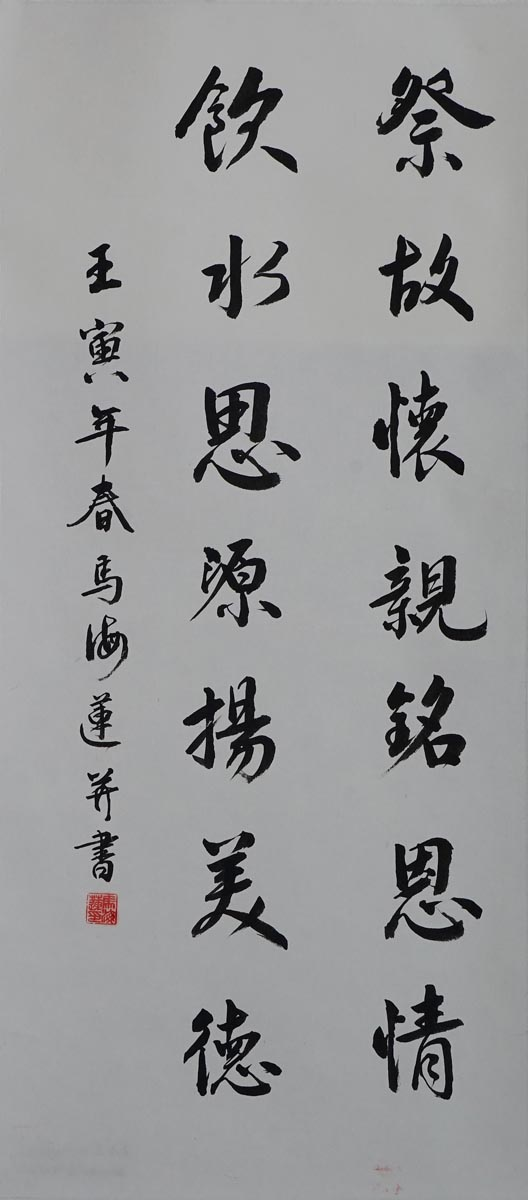 祭故懷親銘恩情
飲水思源揚美德
壬寅年春馬海蓮并書